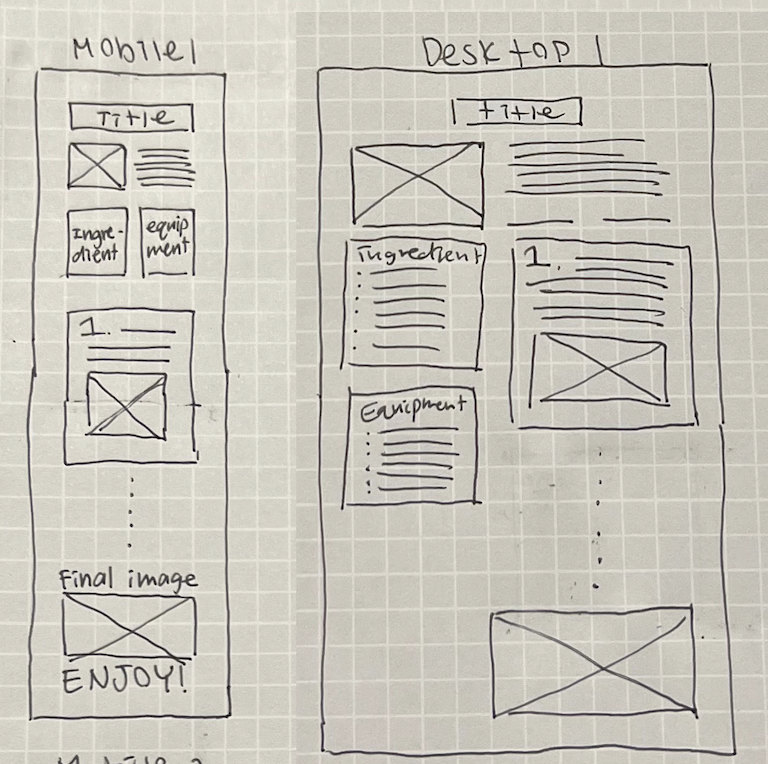 Mobile 1
Title
Ingre-
dient
equip
ment
1.
Final image
ENJOY!
Desktop 1
title
ingredient
1.
Equipment